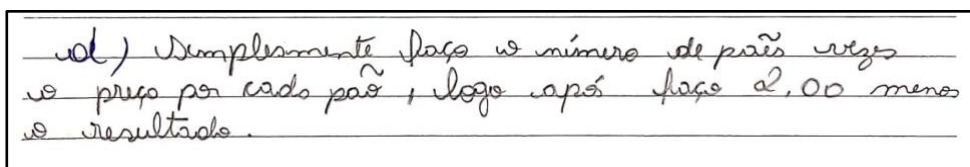 d) Simplesmente faço o número de pães vezes
o preço por cada paõ, logo após faço 2,00 menos
o resultado.